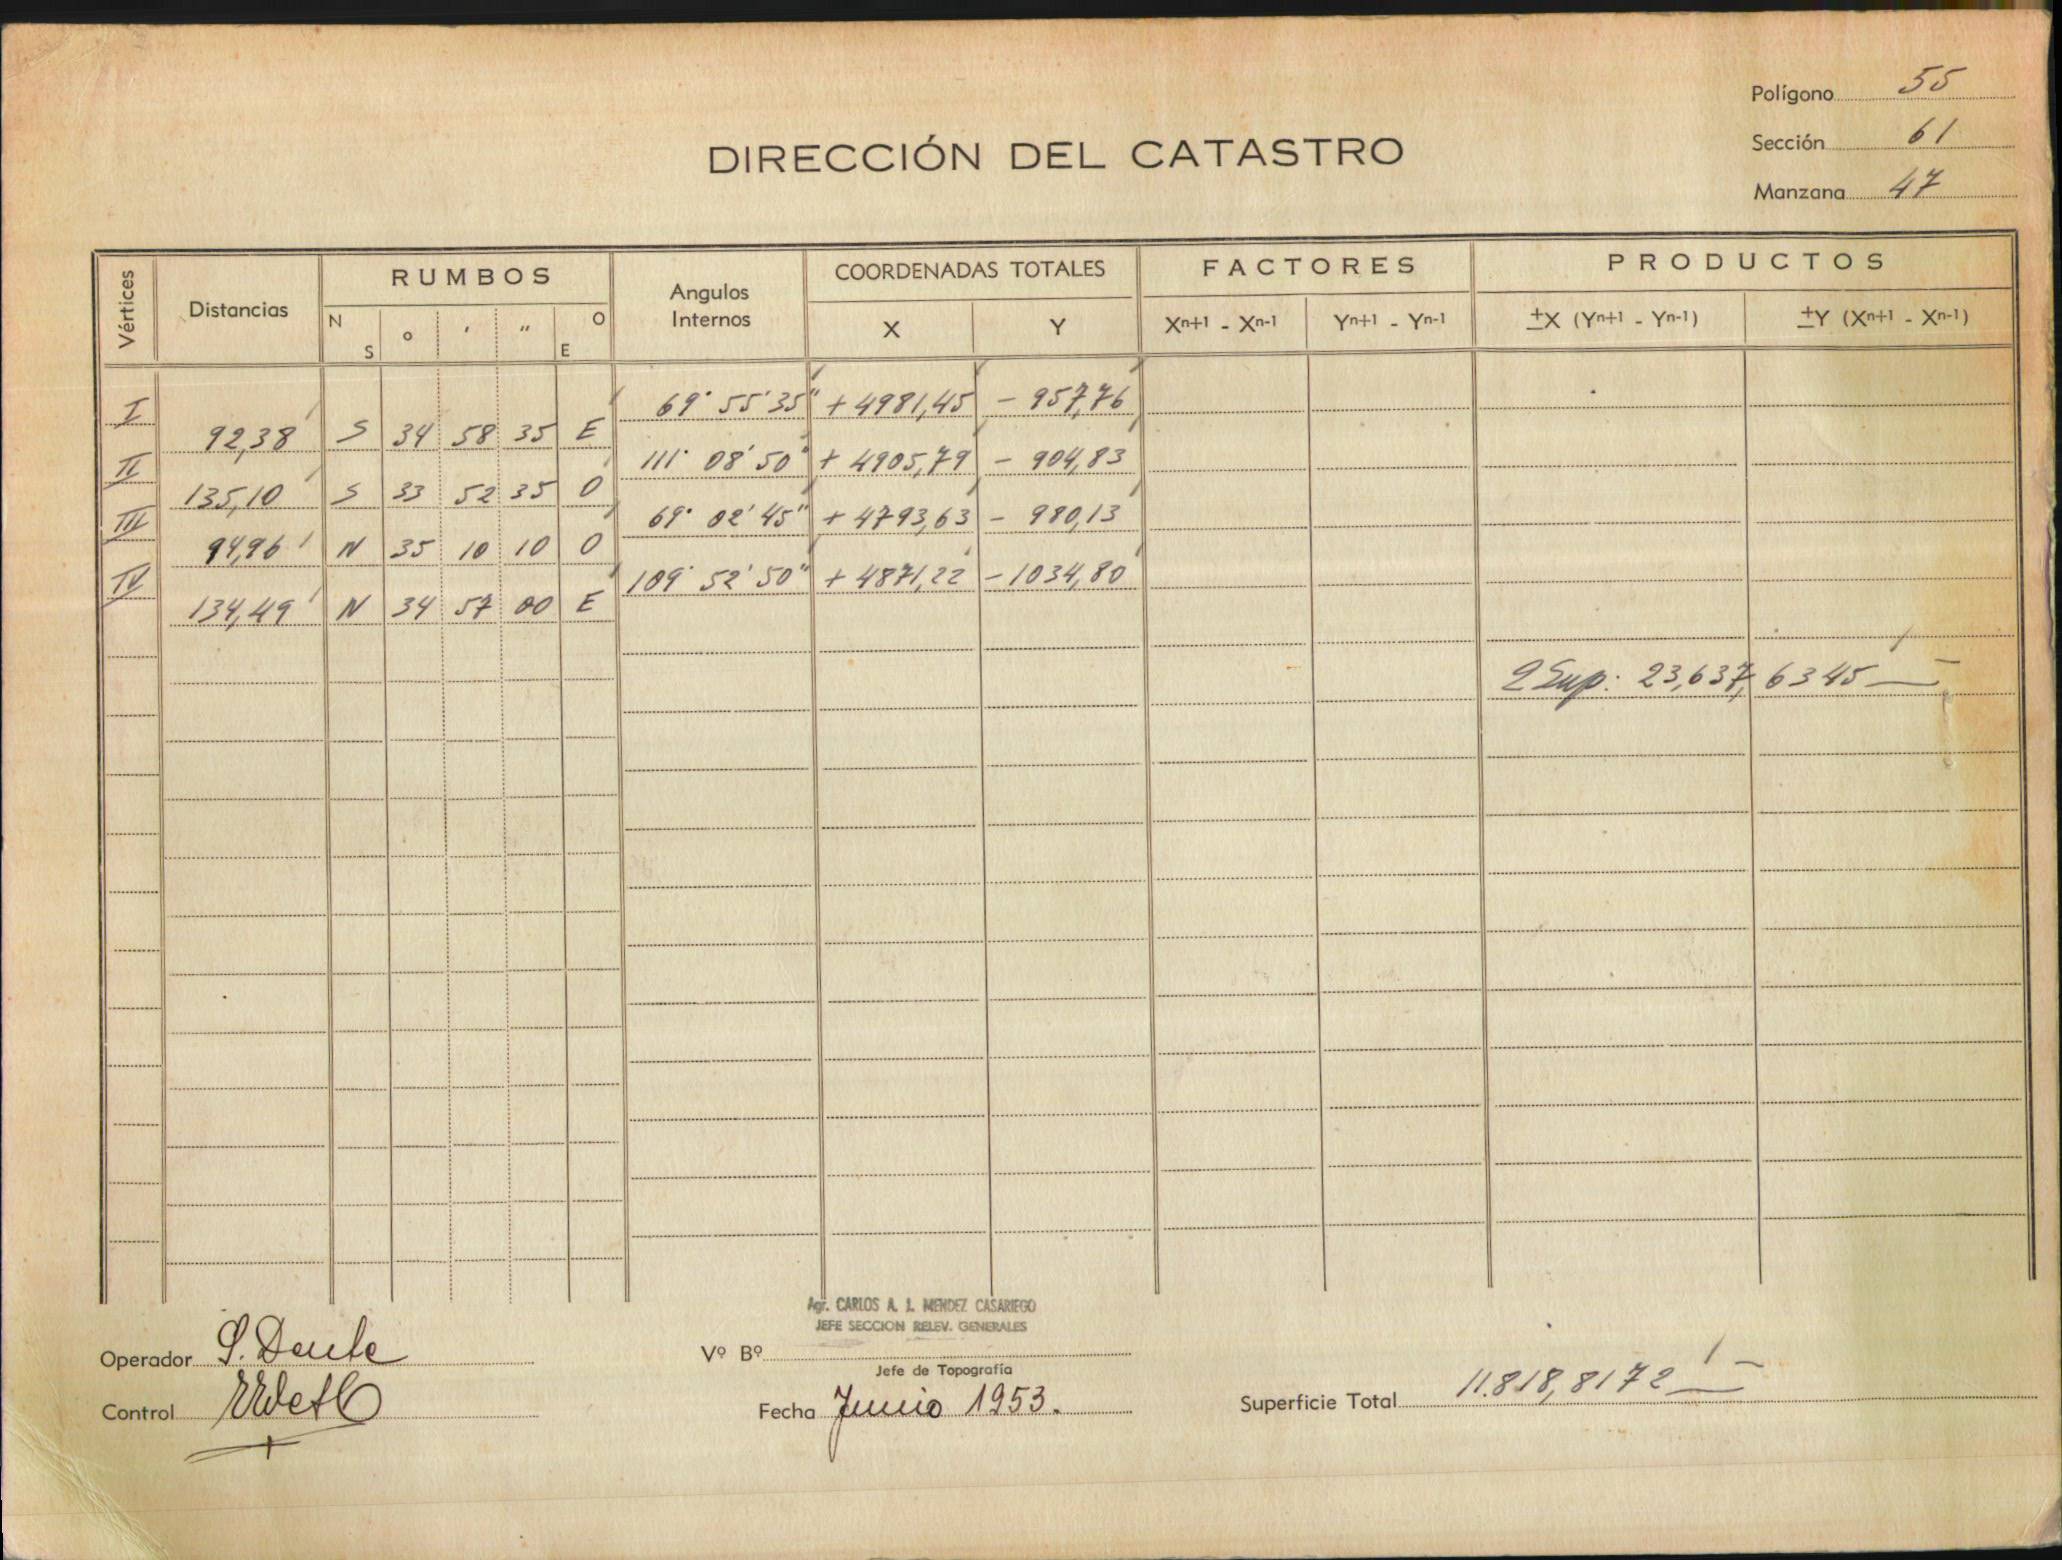 Polígono 55
Sección 61
Manzana 47
DIRECCIÓN DEL CATASTRO
Vértices Distancias RUMBOS Angulos Internos COORDENADAS TOTALES FACTORES PRODUCTOS
N S ° ' " O E X Y Xn+1 - Xn-1 Yn+1 - Yn-1 ±X (Yn+1 - Yn-1) ±Y (Xn+1 - Xn-1)
I 69° 55' 35" + 4981,45 - 957,76
92,38 S 34 58 35 E
II 111° 08' 50" + 4905,79 - 904,83
135,10 S 33 52 35 O
III 69° 02' 45" + 4793,63 - 980,13
94,96 N 35 10 10 O
IV 109° 52' 50" + 4871,22 - 1034,80
134,49 N 34 57 00 E
2 Sup: 23,637,6345
Agr. CARLOS A. J. MENDEZ CASARIEGO
JEFE SECCION RELEV. GENERALES
Operador S. Dente
Vº Bº
Jefe de Topografía
Control
Fecha Junio 1953.
Superficie Total 11.818,8172